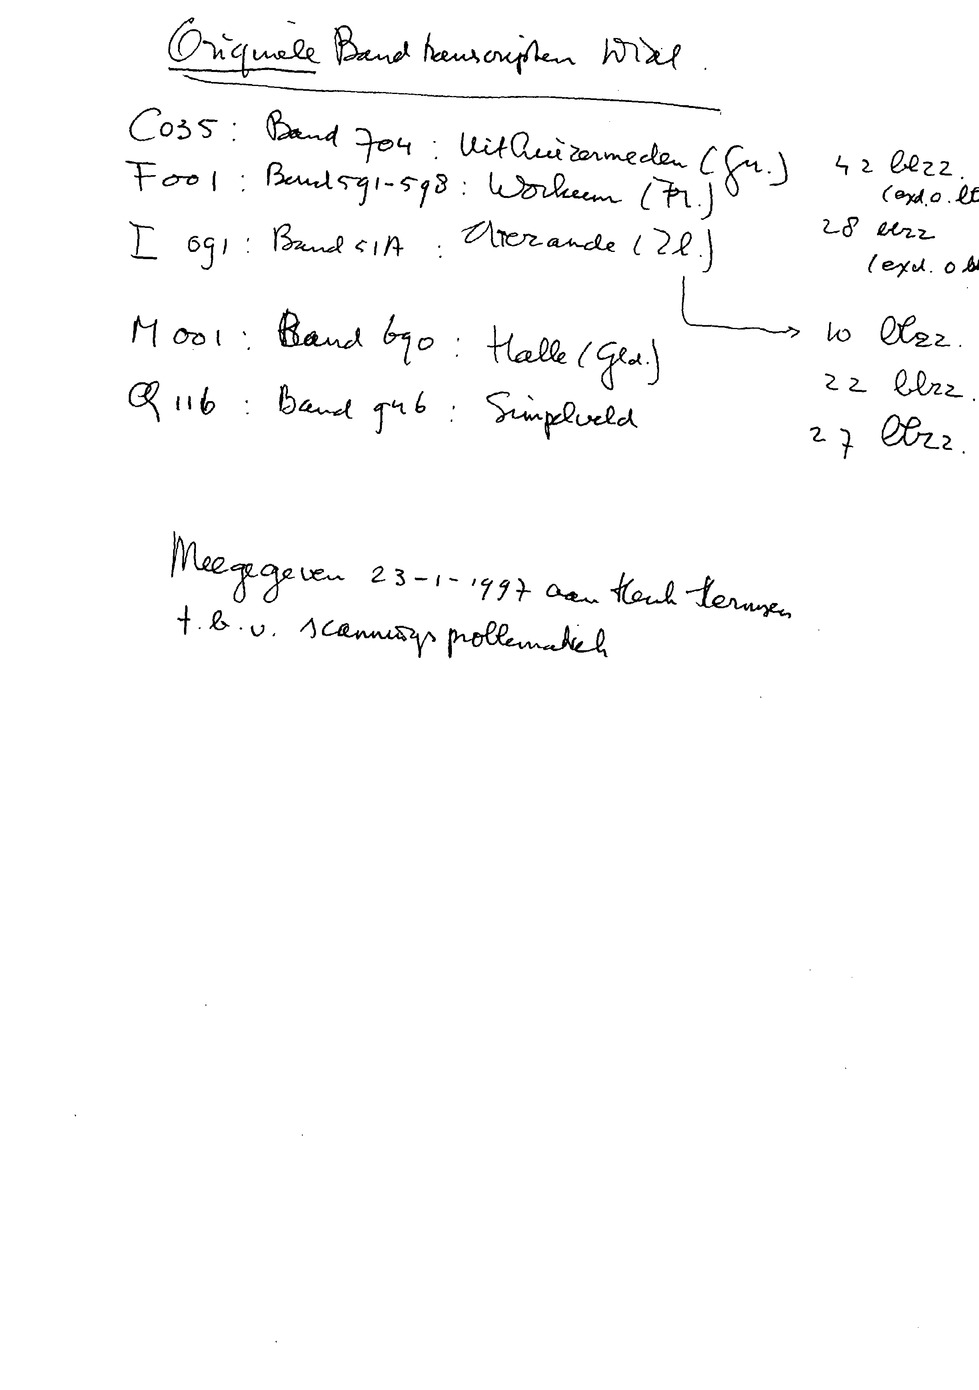 Originele Bandtranscripten
C035: Band 704: Uithuizermeeden (Gn.) 42 blzz.
(excl. o.
F001: Band 591-598: Workum (Fr.) 28 blzz
(excl. o
I 091: Band 51A: (Zl.)
10 blzz.
M001: Band 690: Halle (Gld.) 22 blzz.
Q 116: Band 946: Simpelveld 27 blzz.
Meegegeven 23-1-1997 aan Henk
t.b.v. scanningsproblematiek